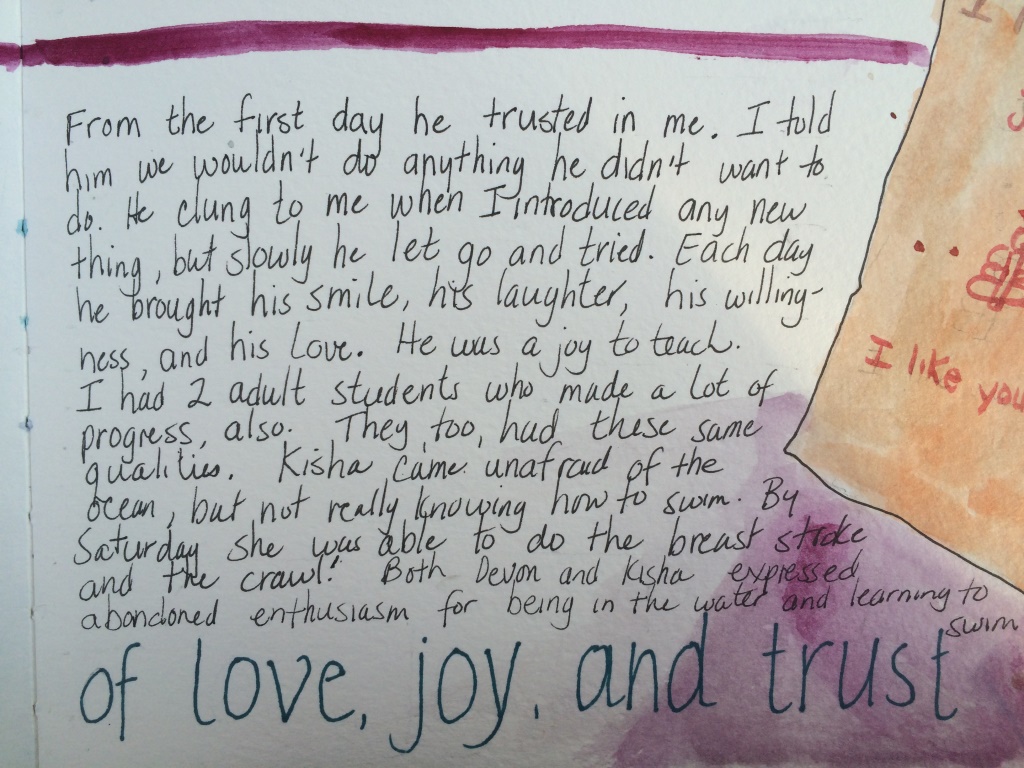 From the first day he trusted in me. I told
him we wouldn't do anything he didn't want to
do. He clung to me when I introduced any new
thing, but slowly he let go and tried. Each day
he brought his smile, his laughter, his willing-
ness, and his love. He was a joy to teach.
I had 2 adult students who made a lot of
progress, also. They, too, had these same
qualities. Kisha came unafraid of the
ocean, but not really knowing how to swim. By
Saturday she was able to do the breast stroke
and the crawl! Both Devon and Kisha expressed
abandoned enthusiasm for being in the water and learning to
swim
of love, joy, and trust
I like you